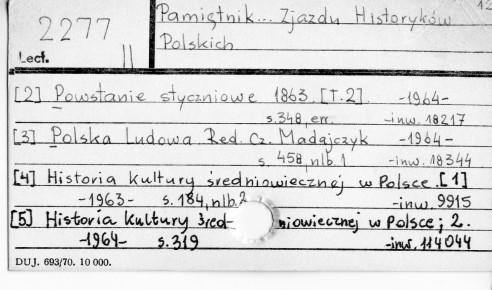 12
2277 II
Lect.
Pamiętnik... Zjazdu Historyków
Polskich
[2] Powstanie styczniowe 1863. [T.2]. -1964-
s.348, err. -inw. 18217
[3] Polska Ludowa Red. Cz. Madajczyk -1964-
s. 458, nlb.1 -inw. 18344
[4] Historia kultury średniowiecznej w Polsce. [1]
-1963- s. 184, nlb.2 -inw. 9915
[5] Historia kultury śred- niowiecznej w Polsce; 2.
-1964- s.319 -inw. 114044
DUJ. 693/70. 10 000.